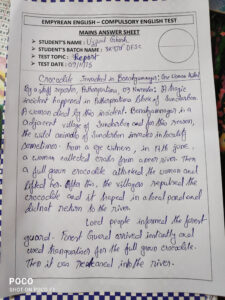 EMPYREAN ENGLISH – COMPULSORY ENGLISH TEST
MAINS ANSWER SHEET
➤ STUDENT'S NAME :
➤ STUDENT'S BATCH NAME :
➤ TEST TOPIC : Report
➤ TEST DATE :
Crocodile Invaded in : One Woman killed
By a staff reporter, Patharpratima, 07 November : A tragic
incident happened in Patharpratima Block of Sundarban.
A woman died by this incident. is a
village of Sundarban and for this reason,
the wild animals of Sundarban invades in locality
sometimes. from a eye witness, in
a woman collected crabs from a near river. Then
a full grown crocodile attacked the woman and
killed her. After this, the villagers the
crocodile and it in a local pond and
did not return to the river.
Local people informed the forest
guard. Forest Guard arrived instantly and
used for the full grown crocodile.
Then it was released into the river.
POCO
SHOT ON POCO